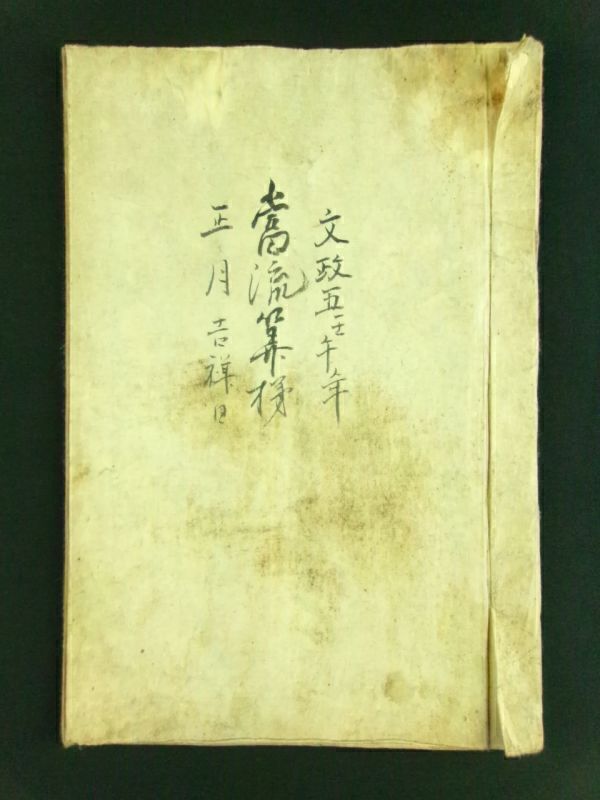 文政五壬午年
當流算梯
正月吉祥日